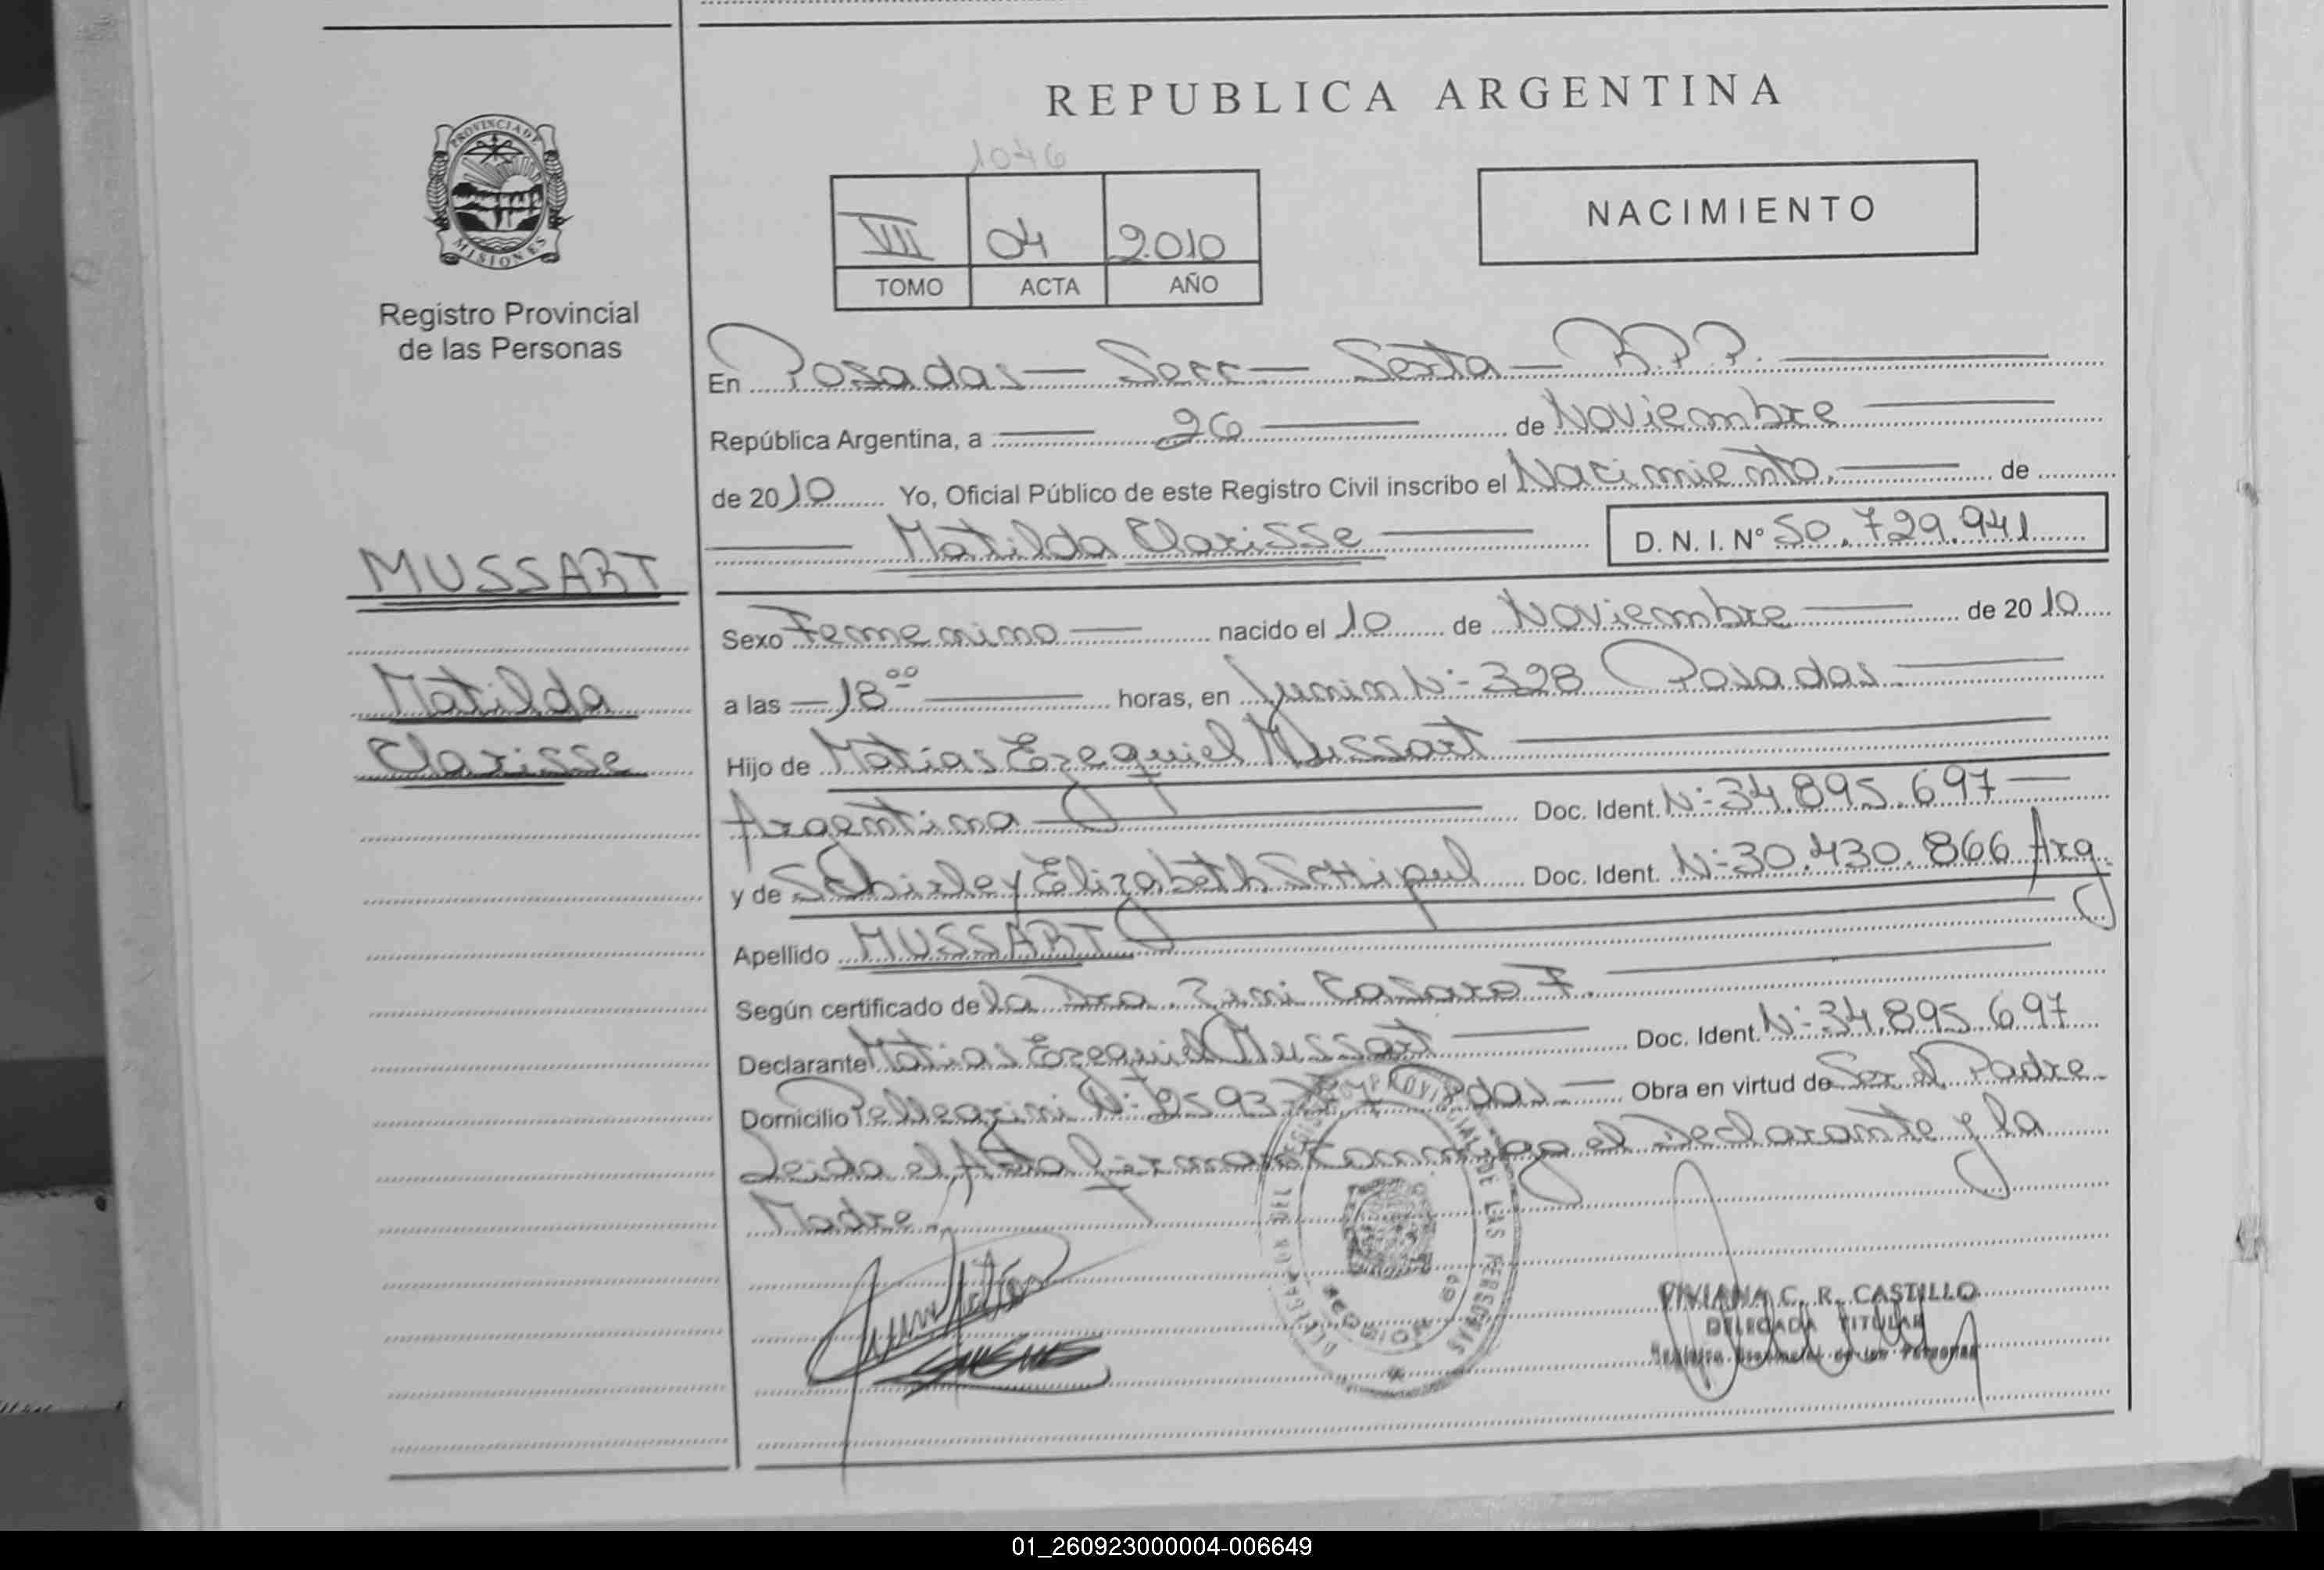 REPUBLICA ARGENTINA
PROVINCIA DE
MISIONES
Registro Provincial
de las Personas
1046
VII 04 2010
TOMO ACTA AÑO
NACIMIENTO
En Posadas — Secc — Sexta — R.P.P.
República Argentina, a 26 de Noviembre
de 2010 Yo, Oficial Público de este Registro Civil inscribo el Nacimiento. de
Matilda Clarisse D. N. I. Nº 50.729.941
MUSSART
Matilda
Clarisse
Sexo Femenino nacido el 10 de Noviembre de 2010
a las 18 00 horas, en Junin N:- 328 Posadas
Hijo de Matias Ezequiel Mussart
Argentino Doc. Ident. N:- 34.895.697
y de Shirley Elizabeth Doc. Ident. N:- 30.430.866 Arg.
Apellido MUSSART
Según certificado de la Dra.
Declarante Matias Ezequiel Mussart Doc. Ident. N:- 34.895.697
Domicilio Pellegrini Pdas. Obra en virtud de Ser el Padre
Leida el Acta firman conmigo el Declarante y la
Madre.
DELEGACION DEL REGISTRO PROVINCIAL DE LAS PERSONAS
SECCION 6a
VIVIANA C. R. CASTILLO
DELEGADA TITULAR
Registro Provincial de las Personas
01_260923000004-006649